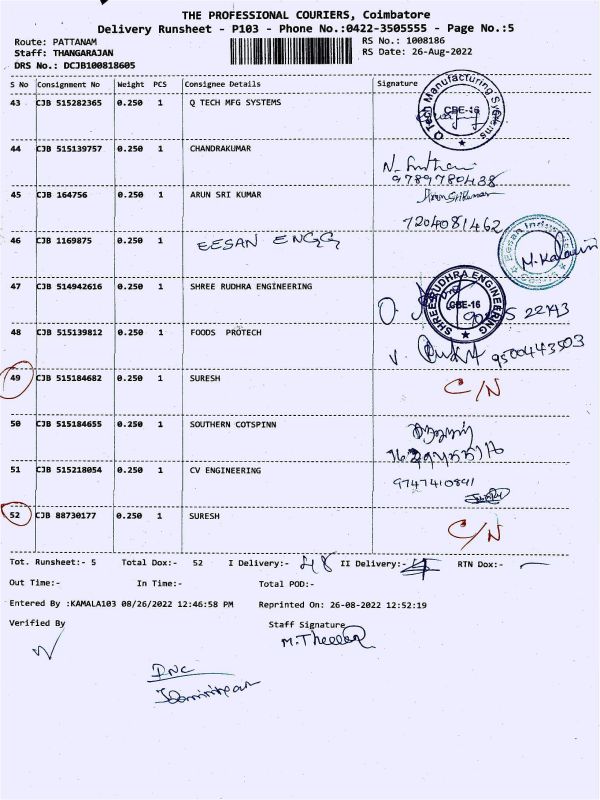 THE PROFESSIONAL COURIERS, Coimbatore
Delivery Runsheet - P103 - Phone No.:0422-3505555 - Page No.:5
Route: PATTANAM RS No.: 1008186
Staff: THANGARAJAN RS Date: 26-Aug-2022
DRS No.: DCJB100818605
S No Consignment No Weight PCS Consignee Details Signature
43 CJB 515282365 0.250 1 Q TECH MFG SYSTEMS
Q Tech Manufacturing Systems CBE-16
44 CJB 515139757 0.250 1 CHANDRAKUMAR
9789780438
45 CJB 164756 0.250 1 ARUN SRI KUMAR ArunSriKumar
7204081462
46 CJB 1169875 0.250 1 EESAN ENGG
47 CJB 514942616 0.250 1 SHREE RUDHRA ENGINEERING
SHREE RUDHRA ENGINEERING CBE-16
48 CJB 515139812 0.250 1 FOODS PROTECH
9500443503
49 CJB 515184682 0.250 1 SURESH C/N
50 CJB 515184655 0.250 1 SOUTHERN COTSPINN
51 CJB 515218054 0.250 1 CV ENGINEERING
9747410891
52 CJB 88730177 0.250 1 SURESH C/N
Tot. Runsheet:- 5 Total Dox:- 52 I Delivery:- 48 II Delivery:- 4 RTN Dox:- —
Out Time:- In Time:- Total POD:-
Entered By :KAMALA103 08/26/2022 12:46:58 PM Reprinted On: 26-08-2022 12:52:19
Verified By Staff Signature
DNC